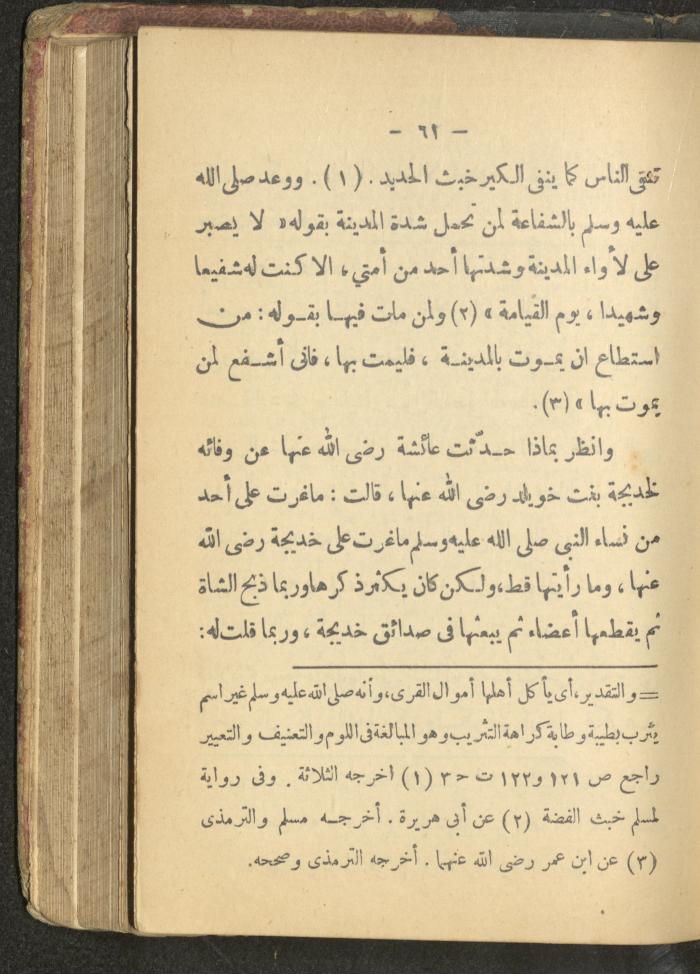 - ٦١ -
تنقى الناس كما ينفى الكير خبث الحديد . (١) . ووعد صلى الله
عليه وسلم بالشفاعة لمن تحمل شدة المدينة بقوله « لا يصبر
على لأواء المدينة وشدتها أحد من أمتي ، الا كنت له شفيعا
وشهيدا ، يوم القيامة » (٢) ولمن مات فيها بقوله : من
استطاع ان يموت بالمدينة ، فليمت بها ، فانى أشفع لمن
يموت بها » (٣) .
وانظر بماذا حدّثت عائشة رضى الله عنها عن وفائه
لخديجة بنت خويلد رضى الله عنها ، قالت : ماغرت على أحد
من نساء النبى صلى الله عليه وسلم ماغرت على خديجة رضى الله
عنها ، وما رأيتها قط، ولكن كان يكثر ذكرها وربما ذبح الشاة
ثم يقطعها أعضاء ثم يبعثها فى صدائق خديجة ، وربما قلت له :
= والتقدير، أى يأكل أهلها أموال القرى، وأنه صلى الله عليه وسلم غير اسم
يثرب بطيبة وطابة كراهة التثريب وهو المبالغة فى اللوم والتعنيف والتعيير
راجع ص ١٢١ و١٢٢ ت ح ٣ (١) اخرجه الثلاثة . وفى رواية
لمسلم خبث الفضة (٢) عن أبى هريرة . أخرجه مسلم والترمذى
(٣) عن ابن عمر رضى الله عنهما . أخرجه الترمذى وصححه.